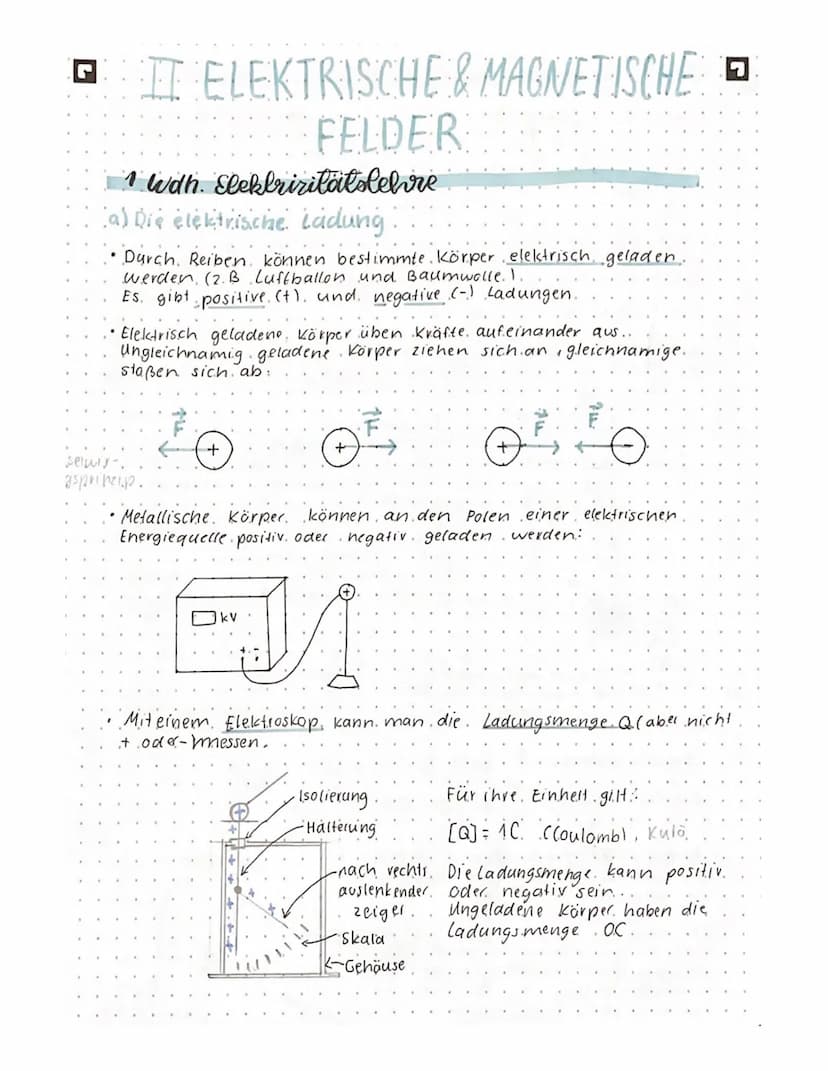 II ELEKTRISCHE & MAGNETISCHE
FELDER
1 Wdh. Elektrizitätslehre
a) Die elektrische Ladung
• Durch Reiben können bestimmte Körper elektrisch geladen
werden (z.B Luftballon und Baumwolle).
Es gibt positive (+) und negative (-) Ladungen
• Elektrisch geladene Körper üben Kräfte aufeinander aus.
Ungleichnamig geladene Körper ziehen sich an, gleichnamige
stoßen sich ab:
F F F F
+ + + -
• Metallische Körper können an den Polen einer elektrischen
Energiequelle positiv oder negativ geladen werden:
+
kV
+ -
• Mit einem Elektroskop kann man die Ladungsmenge Q (aber nicht
+ oder - messen.
Isolierung
Halterung
nach rechts
auslenkender
zeiger
Skala
Gehäuse
Für ihre Einheit gilt:
[Q] = 1C (Coulomb), Kulo
Die Ladungsmenge kann positiv
oder negativ sein.
Ungeladene Körper haben die
Ladungsmenge 0C.